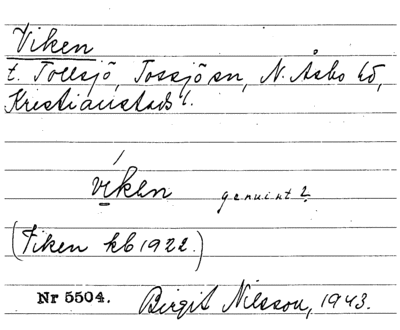 Viken
t. Tollsjö, Tossjö sn, N. Åsbo hd,
Kristianstads l.
víken genuint ?
(Viken kb 1922.)
Nr 5504. Birgit Nilsson, 1943.